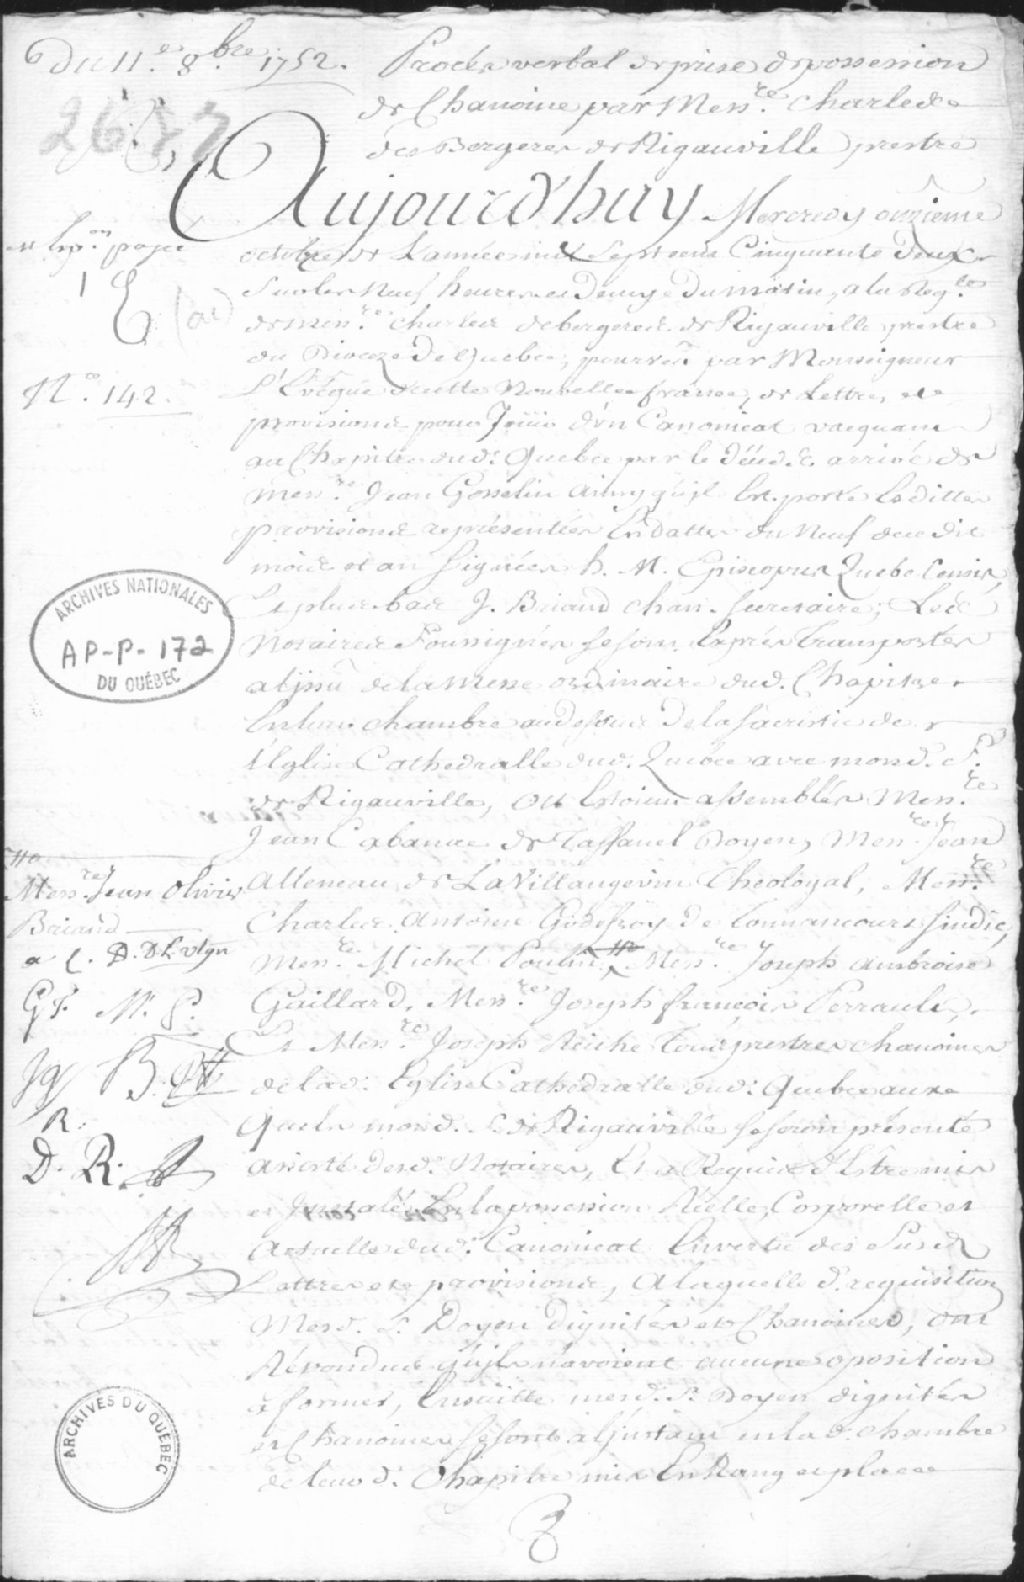 Du 11.e 8.bre 1752. Procès verbal de prise de possession
de Chanoine par Mess.re Charle de
des Bergeres de Rigauville prestre
2657
Aujourd'huy Mercredy onzieme
octobre de L'année mil Sept cent Cinquante deux
Sur les Neuf heures et Demye Du matin, a la Req.te
de mess.re Charles desbergeres de Rigauville prestre
du Dioceze De Quebec, pourvû par Monseigneur
N.o 142. L'Evêque de cette Nouvelle france, de Lettres et
provisions pour Joüir d'un Canonicat vacquant
au Chapitre dud. Quebec par le déceds arrivé de
Mess.re Jean Gosselin ainsy qu'jl Est porté Esdittes
provisions representées En datte du Neuf de ce dit
mois et an Signées h. M. Episcopus Quebecensis,
Et plus bas J. Briand chan. Secretaire; Les
Notaires Soussignés se sont Exprès Transportés
a l'jssüe de la Messe ordinaire dud. Chapitre
En leur chambre au dessus De la Sacristie de
l'Eglise Cathedralle dud. Quebec avec mond. S.r
de Rigauville, ou Estoient assemblés Mess.re
Jean Cabanac de Taffanel Doyen, Mess.re Jean
Alleneau de LaVillangevin Theologal, Mess.re
Charles Antoine Godefroy de Tonnancourt Sindic,
Mess.re Michel Poulin, Mess.re Joseph ambroise
Gaillard, Mess.re Joseph françois Perrault,
Et Mess.re Joseph Réiche Tous prestres chanoines
de lad. Eglise Cathedralle dud. Quebec aux
Quels mond. S. de Rigauville se seroit présenté
assisté Desd. Notaires, Et a Requis d'Etre mis
et Jnstalé En la possession Réelle, Corporelle et
Actuelle dud. Canonicat En vertu des Susd.
Lettres et provisions, A laquelle d. requisition
Mesd. S. Doyen dignités et Chanoines, ont
Répondu Qu'jls n'avoient aucune oposition
à former, Ensuitte mesd. S. Doyen dignités
et Chanoines Se sont a l'jnstant en la d. chambre
de leur d. Chapitre mis En Rang et place
Mess.re Jean Olivier
Briand
a C. D. D L vlgn
G. T. M. P.
J g B.
R.
D. R.
ARCHIVES NATIONALES
AP-P-172
DU QUÉBEC
ARCHIVES DU QUÉBEC